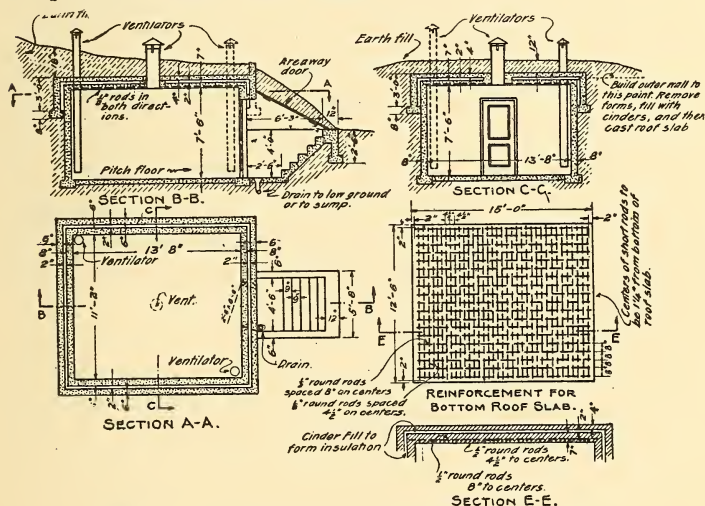 Ventilators
Areaway
door
½" rods in
both direct-
ions.
7'-6"
6'-3"
4'-0"
2'-6"
Pitch floor
Drain to low ground
or to sump.
SECTION B-B.
Ventilators
Earth fill
12"
Build outer wall to
this point. Remove
forms, fill with
cinders, and then
cast roof slab
7'-6"
8"
13'-8"
8"
SECTION C-C.
C
13' 8"
Ventilator
11'-2"
Vent.
B
B
4'-6"
5'-8"
12"
Drain.
Ventilator
C
SECTION A-A.
15'-0"
2"
2"
12'-6"
E
E
Centers of short rods to
be 1¼" from bottom of
roof slab.
½" round rods
spaced 8" on centers
½" round rods spaced
4½" on centers.
REINFORCEMENT FOR
BOTTOM ROOF SLAB.
Cinder Fill to
form insulation
½" round rods
4½" to centers.
½" round rods
8" to centers.
SECTION E-E.